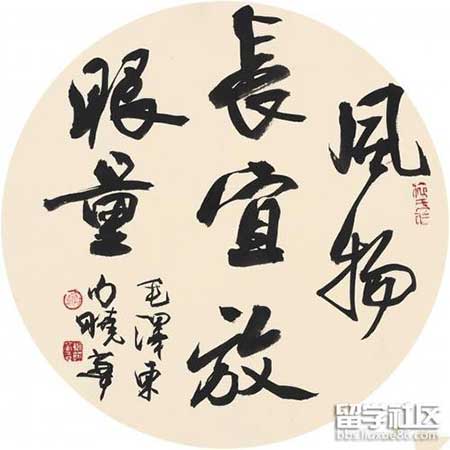 風物
長宜放
眼量
毛澤東
曉華
留学社区
bbs.liuxue86.com